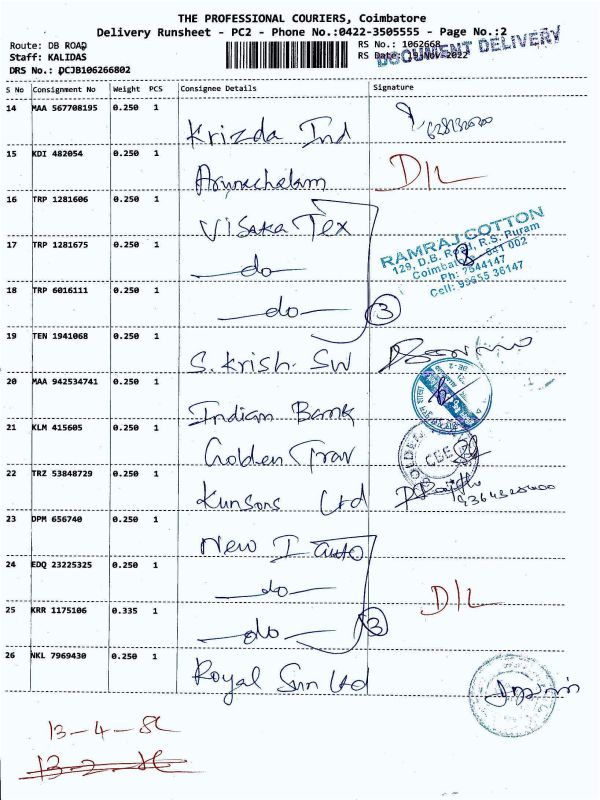 THE PROFESSIONAL COURIERS, Coimbatore
Delivery Runsheet - PC2 - Phone No.:0422-3505555 - Page No.:2
Route: DB ROAD
RS No.: 1062668
Staff: KALIDAS
RS Date: 19 Nov 2022
DOCUMENT DELIVERY
DRS No.: DCJB106266802
S No Consignment No Weight PCS Consignee Details Signature
14 MAA 567708195 0.250 1
Krizda Ind
15 KDI 482054 0.250 1
Arunachalam D/L
16 TRP 1281606 0.250 1
Visaka Tex
17 TRP 1281675 0.250 1
do
RAMRAJ COTTON
129, D.B. Road, R.S. Puram
Coimbatore 641 002
Ph: 2544147
Cell: 99655 36147
18 TRP 6016111 0.250 1
do 3
19 TEN 1941068 0.250 1
S. Krish SW
20 MAA 942534741 0.250 1
Indian Bank
21 KLM 415605 0.250 1
Golden Trav
CBE
22 TRZ 53848729 0.250 1
Kunsons Ltd
23 DPM 656740 0.250 1
New I auto
24 EDQ 23225325 0.250 1
do D/L
25 KRR 1175106 0.335 1
do 3
26 NKL 7969430 0.250 1
Royal Sun Ltd